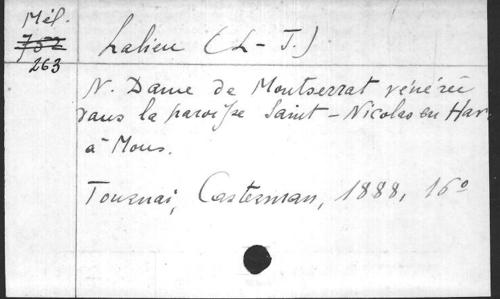 Mél.
732
263
Lalieu (L-J.)
N. Dame de Montserrat vénérée
dans la paroisse Saint-Nicolas en Hav.
à Mons.
Tournai, Casterman, 1888, 16º